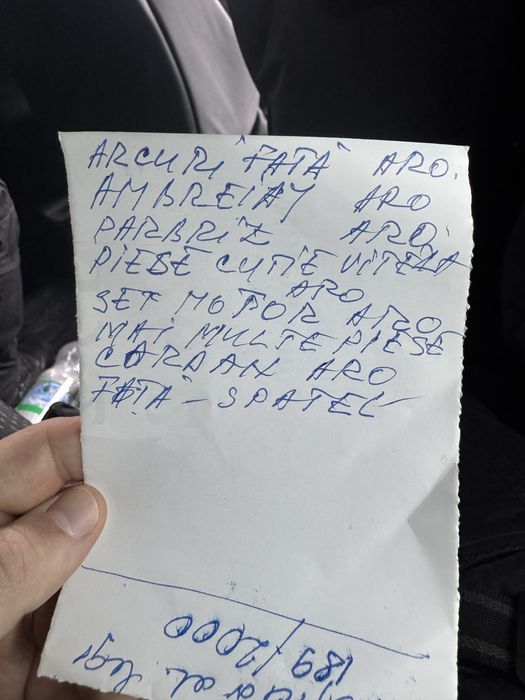 ARCURI "FAȚĂ" ARO.
AMBREIAJ ARO
PARBRIZ ARO.
PIESE CUTIE VITEZA
ARO
SET MOTOR ARO
MAI MULTE PIESE
CARDAN ARO
FAȚĂ - SPATE
189/2000
legs